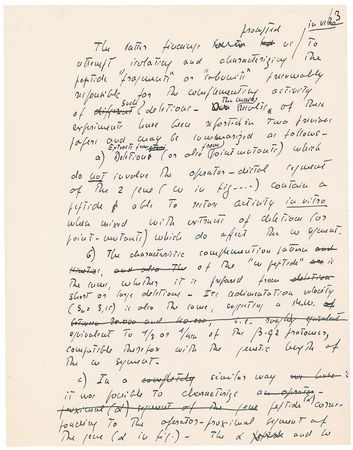 13
The latter findings prompted us to in vitro
attempt isolating and characterizing the
peptide "fragments" or "subunits" presumably
responsible for the complementing activity
of different such deletions. The main results of these
experiments have been reported in two previous
papers and may be summarized as follows -
a) Extracts prepared from Deletions (or also point mutants) which
do not involve the operator-distal segment
of the z gene (ω in fig....) contain a
peptide able to restore activity in vitro
when mixed with extracts of deletions (or
point-mutants) which do affect the ω segment.
b) The characteristic complementation pattern and
and also the of the "ω peptide" is
the same, whether it is prepared from deletion
short or large deletions - Its sedimentation velocity
is also the same, suggesting a
between 30.000 and i.e. roughly equivalent
equivalent to 1/3 or 1/4 of the β-gz protomer,
compatible therefore with the genetic length of
the ω segment.
c) In a completely similar way
it was possible to characterize an operator-
proximal (α) segment of the gene peptide (α) corres-
ponding to the operator-proximal segment of
the gene (α in fig.) - The α and ω